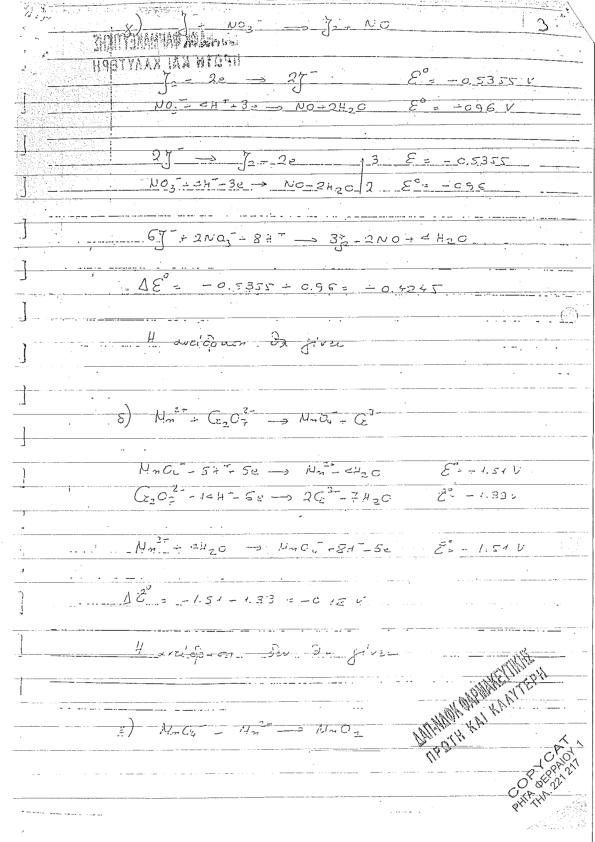 γ) J⁻ + NO₃⁻ → J₂ + NO
3
ΠΡΩΤΗ ΚΑΙ ΚΑΛΥΤΕΡΗ
J₂ + 2e → 2J⁻ Ε° = -0.5355 V
NO₃⁻ + 4H⁺ + 3e → NO + 2H₂O Ε° = +0.96 V
2J⁻ → J₂ + 2e | 3 Ε = -0.5355
NO₃⁻ + 4H⁺ + 3e → NO + 2H₂O | 2 Ε° = +0.96
6J⁻ + 2NO₃⁻ + 8H⁺ → 3J₂ + 2NO + 4H₂O
ΔΕ° = -0.5355 + 0.96 = +0.4245
Η αντίδραση θα γίνει
δ) Mn²⁺ + Cr₂O₇²⁻ → MnO₄⁻ + Cr³⁺
MnO₄⁻ + 8H⁺ + 5e → Mn²⁺ + 4H₂O Ε° = +1.51 V
Cr₂O₇²⁻ + 14H⁺ + 6e → 2Cr³⁺ + 7H₂O Ε° = +1.33 v
Mn²⁺ + 4H₂O → MnO₄⁻ + 8H⁺ + 5e Ε° = -1.51 V
ΔΕ° = -1.51 + 1.33 = -0.18 V
Η αντίδραση δεν θα γίνει
ε) MnO₄⁻ + Mn²⁺ → MnO₂
ΔΑΠ-ΝΔΦΚ ΦΑΡΜΑΚΕΥΤΙΚΗΣ
ΠΡΩΤΗ ΚΑΙ ΚΑΛΥΤΕΡΗ
COPYCAT
ΡΗΓΑ ΦΕΡΡΑΙΟΥ 1
ΤΗΛ. 221 217